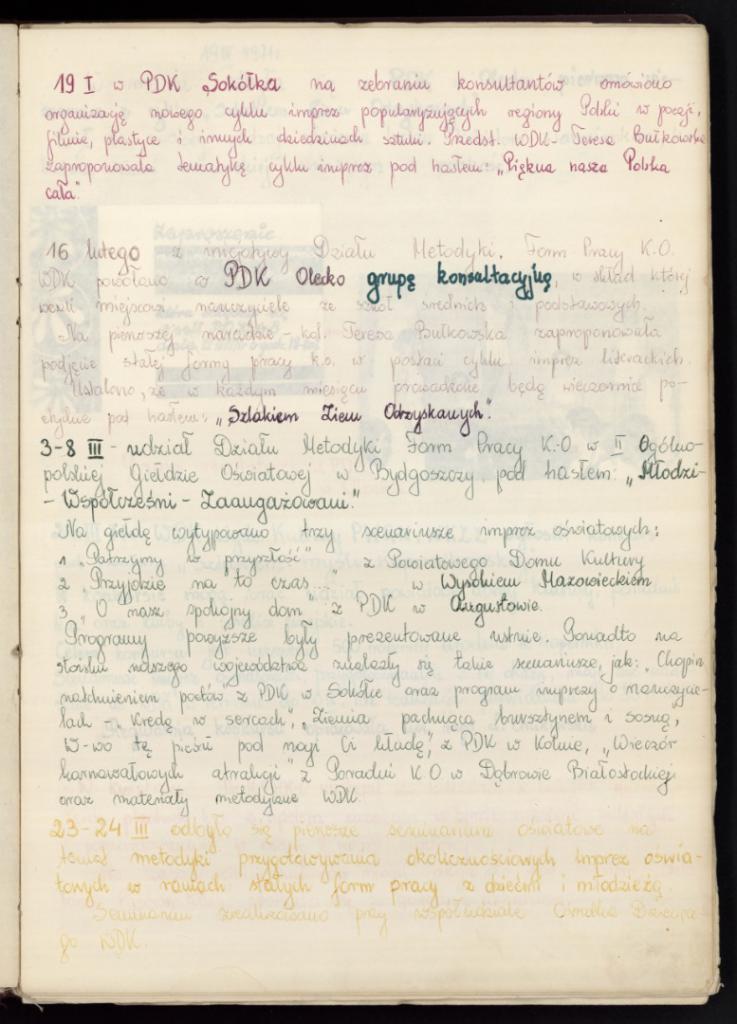 19 I w PDK Sokółka na zebraniu konsultantów omówiono
organizację nowego cyklu imprez popularyzujących regiony Polski w poezji,
filmie, plastyce i innych dziedzinach sztuki. Przedst. WDK - Teresa Bułkowska
zaproponowała tematykę cyklu imprez pod hasłem: „Piękna nasza Polska
cała".
16 lutego z inicjatywy Działu Metodyki, Form Pracy K.O.
WDK powołano w PDK Olecko grupę konsultacyjną, w skład której
weszli miejscowi nauczyciele ze szkół średnich i podstawowych.
Na pierwszej naradzie - kol. Teresa Bułkowska zaproponowała
podjęcie stałej formy pracy k.o. w postaci cyklu imprez literackich.
Ustalono, że w każdym miesiącu prowadzone będą wieczornice po-
etyckie pod hasłem: „Szlakiem Ziem Odzyskanych".
3-8 III - udział Działu Metodyki Form Pracy K.O w II Ogólno-
polskiej Giełdzie Oświatowej w Bydgoszczy pod hasłem: „Młodzi-
- Współcześni - Zaangażowani."
Na giełdę wytypowano trzy scenariusze imprez oświatowych:
1 „Patrzymy w przyszłość" z Powiatowego Domu Kultury
2 „Przyjdzie na to czas..." w Wysokiem Mazowieckiem
3 „O nasz spokojny dom" z PDK w Augustowie.
Programy powyższe były prezentowane ustnie. Ponadto na
stoisku naszego województwa znalazły się takie scenariusze, jak: „Chopin
natchnieniem poetów" z PDK w Sokółce oraz program imprezy o nauczycie-
lach - „Kredą w sercach", „Ziemia pachnąca bursztynem i sosną,
W-wo tę pieśń pod nogi Ci kładę", z PDK w Kolnie, „Wieczór
karnawałowych atrakcji" z Poradni K.O w Dąbrowie Białostockiej
oraz materiały metodyczne WDK.
23-24 III odbyło się pierwsze seminarium oświatowe na
temat metodyki przygotowywania okolicznościowych imprez oświa-
towych w ramach stałych form pracy z dziećmi i młodzieżą.
Seminarium zrealizowano przy współudziale Ośrodka Dziecięce-
go WDK.